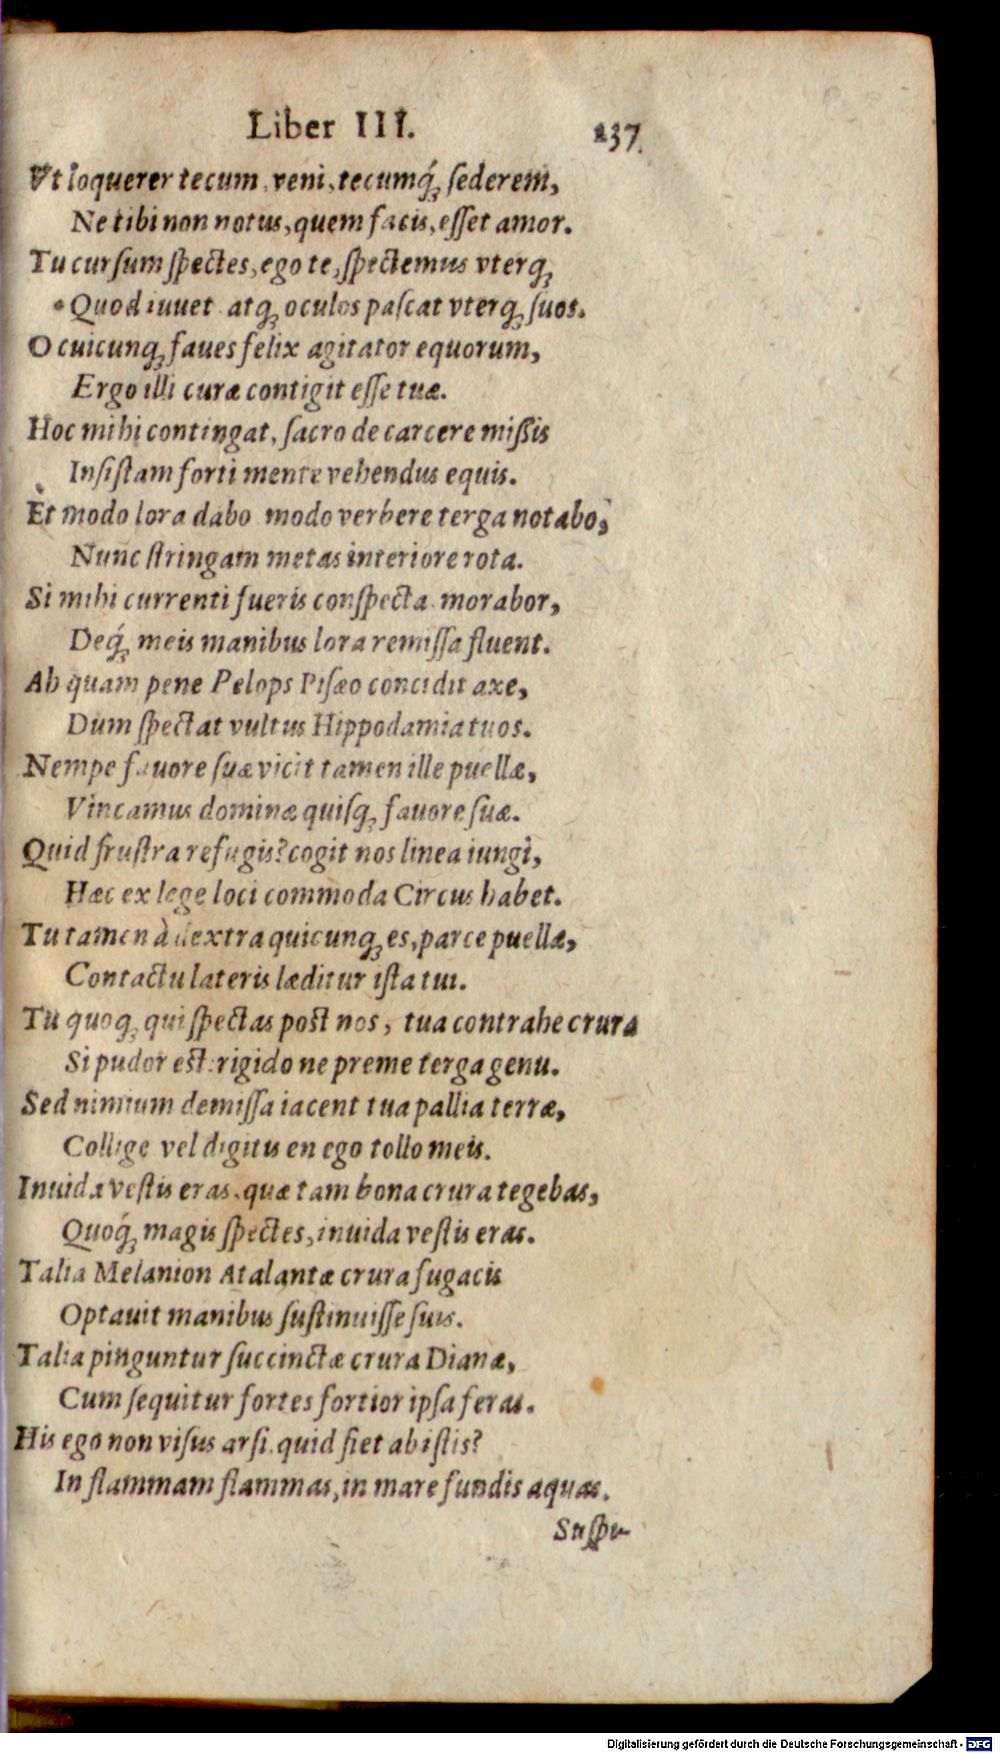 Liber III. 237
Vt loquerer tecum, veni, tecumq́; sederem,
Ne tibi non notus, quem facis, esset amor.
Tu cursum spectes, ego te, spectemus vterq;
Quod iuuet atq; oculos pascat vterq; suos.
O cuicunq; faues felix agitator equorum,
Ergo illi curæ contigit esse tuæ.
Hoc mihi contingat, sacro de carcere missis
Insistam forti mente vehendus equis.
Et modo lora dabo modo verbere terga notabo,
Nunc stringam metas interiore rota.
Si mihi currenti fueris conspecta morabor,
Deq́; meis manibus lora remissa fluent.
Ah quam pene Pelops Pisæo concidit axe,
Dum spectat vultus Hippodamia tuos.
Nempe fauore suæ vicit tamen ille puellæ,
Vincamus dominæ quisq; fauore suæ.
Quid frustra refugis? cogit nos linea iungi,
Hæc ex lege loci commoda Circus habet.
Tu tamen à dextra quicunq; es, parce puellæ,
Contactu lateris læditur ista tui.
Tu quoq; qui spectas post nos, tua contrahe crura
Si pudor est: rigido ne preme terga genu.
Sed nimium demissa iacent tua pallia terræ,
Collige vel digitis en ego tollo meis.
Inuida vestis eras, quæ tam bona crura tegebas,
Quoq́; magis spectes, inuida vestis eras.
Talia Melanion Atalantæ crura fugacis
Optauit manibus sustinuisse suis.
Talia pinguntur succinctæ crura Dianæ,
Cum sequitur fortes fortior ipsa feras.
His ego non visus arsi, quid fiet ab istis?
In flammam flammas, in mare fundis aquas.
Suspi-
Digitalisierung gefördert durch die Deutsche Forschungsgemeinschaft - DFG